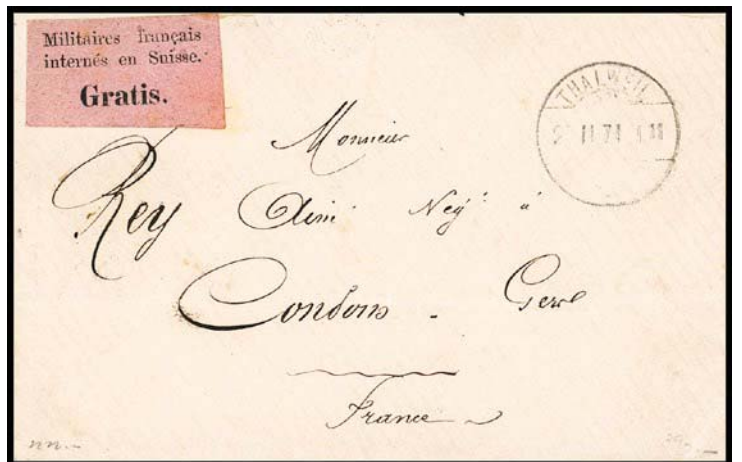 Militaires français
internés en Suisse.
Gratis.
THALWEIL
II 71
Monsieur
Rey Aimé Negt. à
Condom. Gers
France